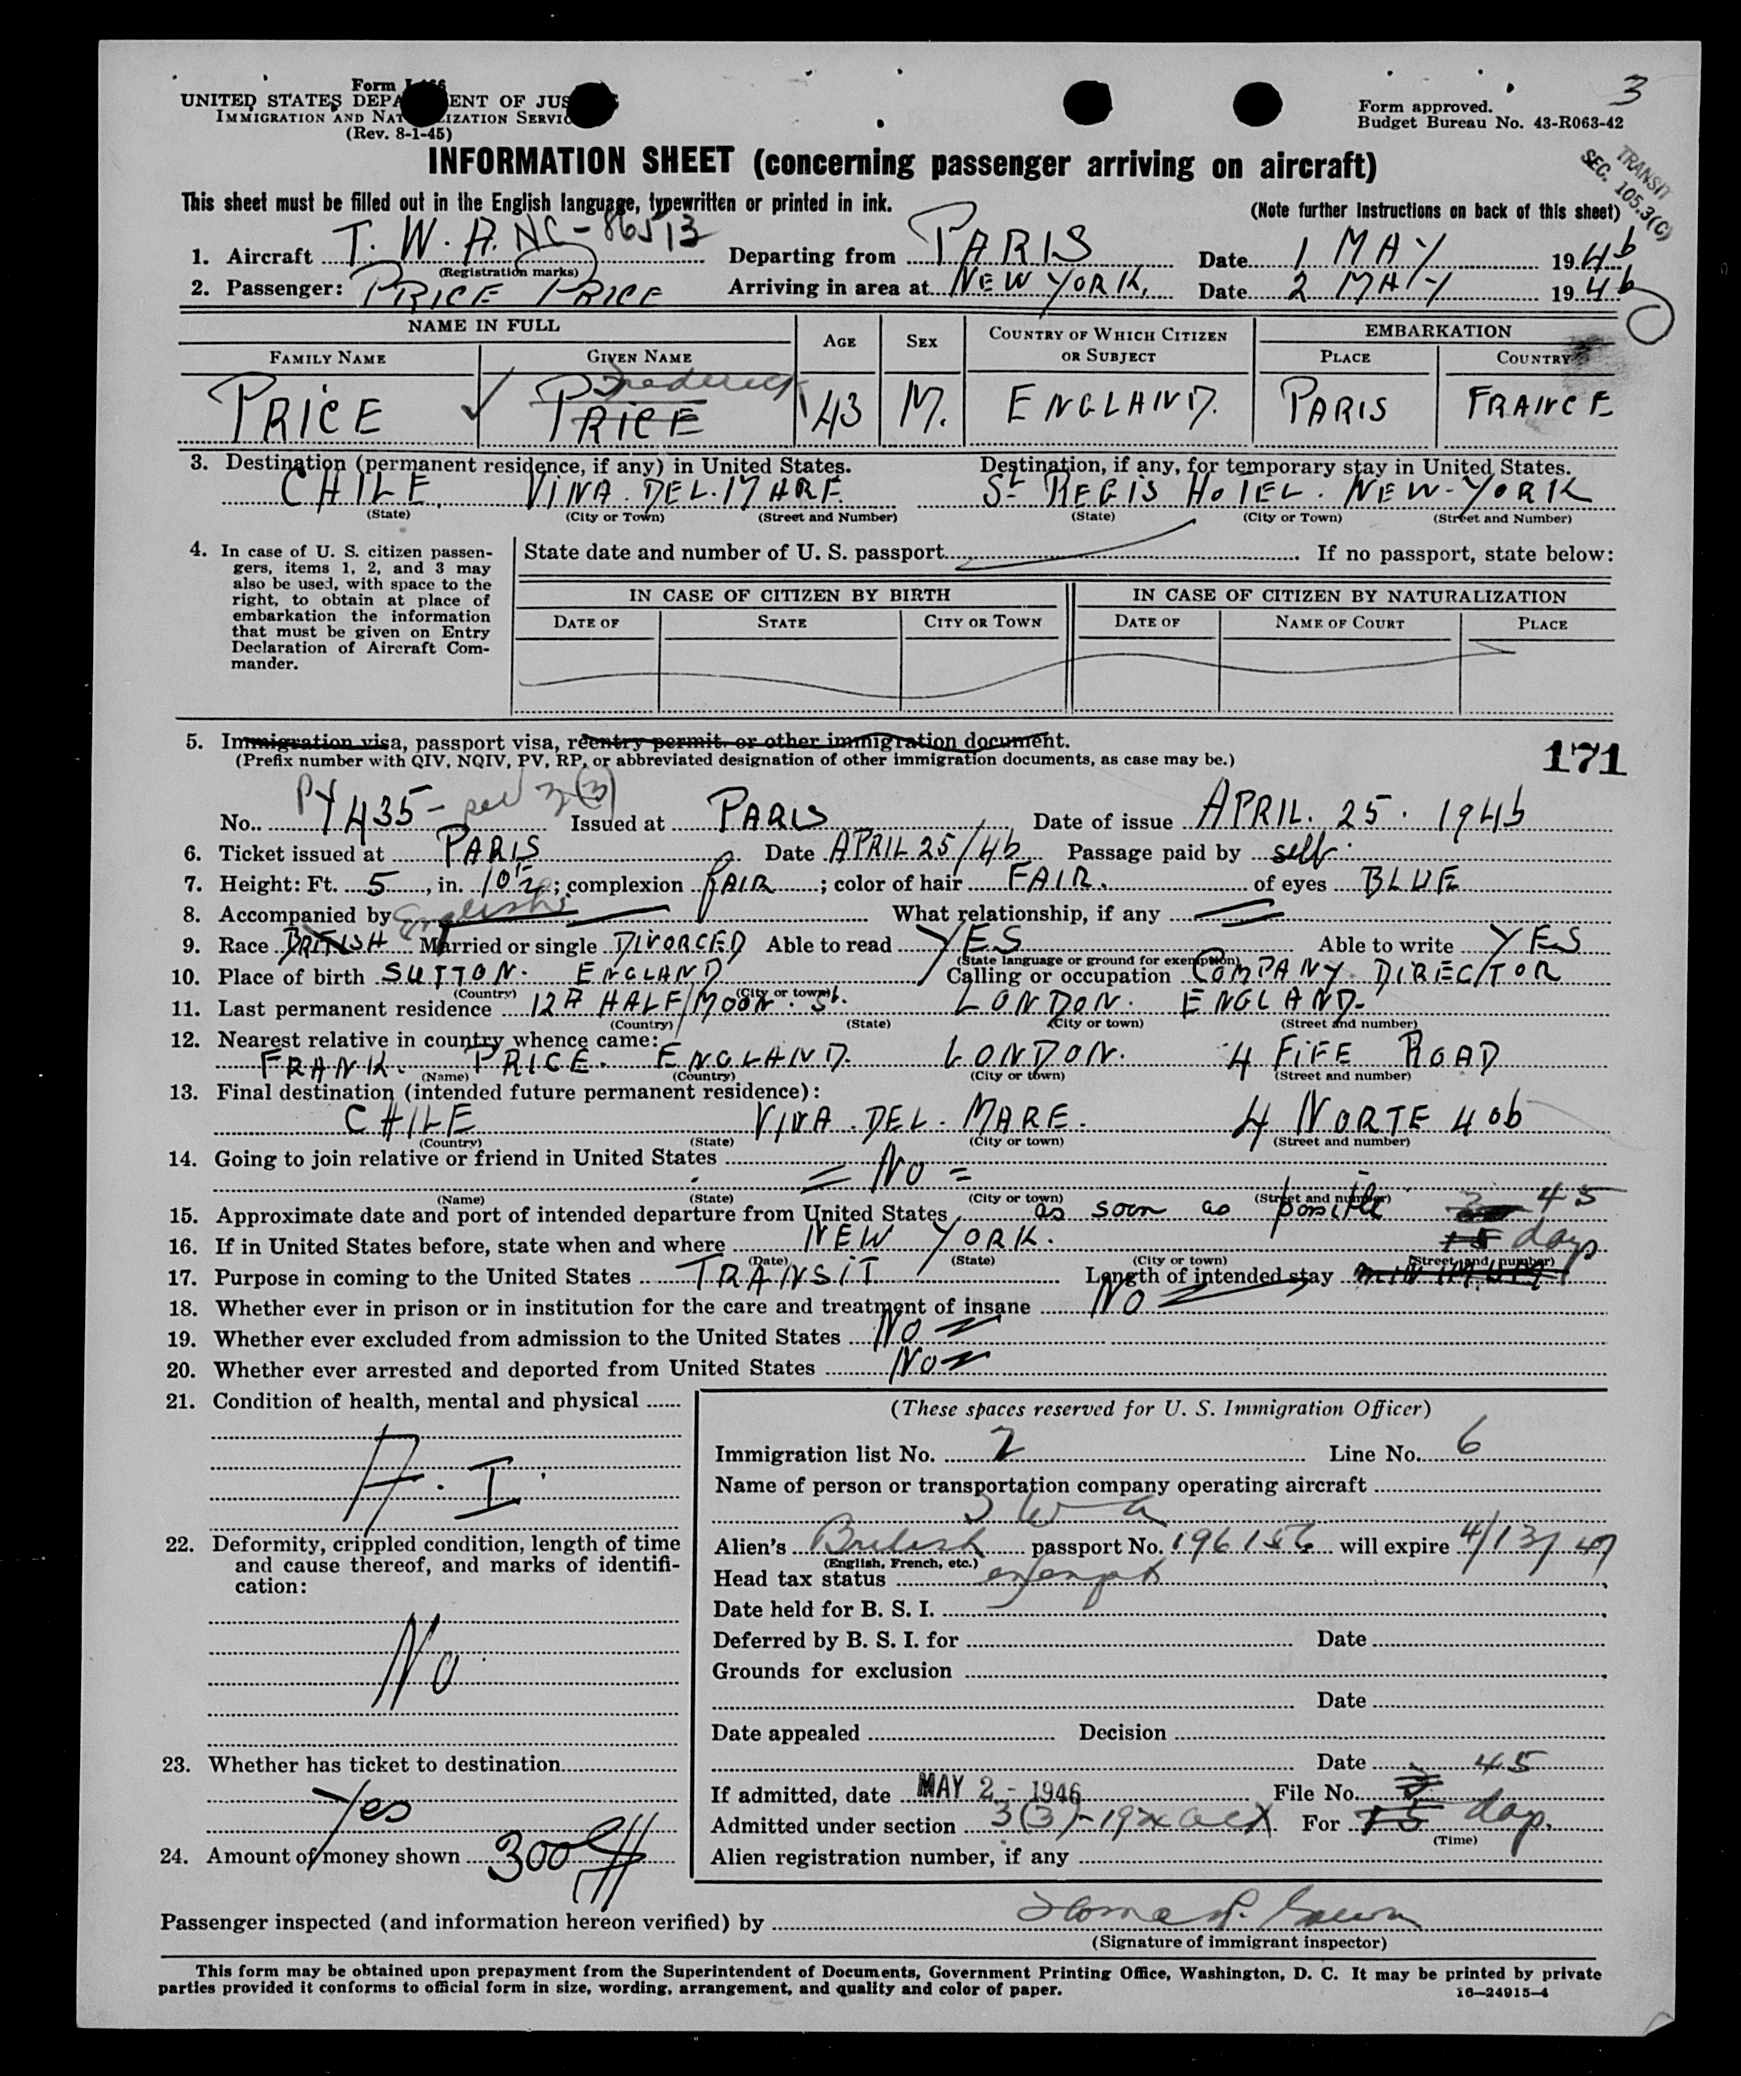 3
Form I-466
UNITED STATES DEPARTMENT OF JUSTICE
IMMIGRATION AND NATURALIZATION SERVICE
(Rev. 8-1-45)
Form approved.
Budget Bureau No. 43-R063-42
TRANSIT
SEC. 105.3(C)
INFORMATION SHEET (concerning passenger arriving on aircraft)
This sheet must be filled out in the English language, typewritten or printed in ink.
(Note further instructions on back of this sheet)
1. Aircraft T. W. A. NC-86513 Departing from PARIS Date 1 MAY 1946
(Registration marks)
2. Passenger: PRICE PRICE Arriving in area at NEW YORK, Date 2 MAY 1946
NAME IN FULL AGE SEX COUNTRY OF WHICH CITIZEN OR SUBJECT EMBARKATION
FAMILY NAME GIVEN NAME PLACE COUNTRY
Frederick
PRICE PRICE 43 M. ENGLAND. PARIS FRANCE
3. Destination (permanent residence, if any) in United States. Destination, if any, for temporary stay in United States.
CHILE VINA. DEL. MARE. St REGIS HOTEL. NEW-YORK
(State) (City or Town) (Street and Number) (State) (City or Town) (Street and Number)
4. In case of U. S. citizen passen-
gers, items 1, 2, and 3 may
also be used, with space to the
right, to obtain at place of
embarkation the information
that must be given on Entry
Declaration of Aircraft Com-
mander.
State date and number of U. S. passport If no passport, state below:
IN CASE OF CITIZEN BY BIRTH IN CASE OF CITIZEN BY NATURALIZATION
DATE OF STATE CITY OR TOWN DATE OF NAME OF COURT PLACE
5. Immigration visa, passport visa, reentry permit, or other immigration document.
(Prefix number with QIV, NQIV, PV, RP, or abbreviated designation of other immigration documents, as case may be.)
171
No. PV 435- sec 3(3) Issued at PARIS Date of issue APRIL. 25. 1946
6. Ticket issued at PARIS Date APRIL 25/46 Passage paid by self.
7. Height: Ft. 5, in. 10½; complexion FAIR; color of hair FAIR. of eyes BLUE
8. Accompanied by What relationship, if any
English
9. Race BRITISH Married or single DIVORCED Able to read YES Able to write YES
(State language or ground for exemption)
10. Place of birth SUTTON. ENGLAND Calling or occupation COMPANY DIRECTOR
(Country) (City or town)
11. Last permanent residence 12A HALF MOON. St. LONDON. ENGLAND.
(Country) (State) (City or town) (Street and number)
12. Nearest relative in country whence came:
FRANK. PRICE. ENGLAND. LONDON. 4 FIFE ROAD
(Name) (Country) (City or town) (Street and number)
13. Final destination (intended future permanent residence):
CHILE VINA. DEL. MARE. 4 NORTE 406
(Country) (State) (City or town) (Street and number)
14. Going to join relative or friend in United States
= NO =
(Name) (State) (City or town) (Street and number)
15. Approximate date and port of intended departure from United States as soon as possible 45
16. If in United States before, state when and where NEW YORK. 15 days
(Date) (State) (City or town) (Street and number)
17. Purpose in coming to the United States TRANSIT Length of intended stay MINIMUM
18. Whether ever in prison or in institution for the care and treatment of insane NO
19. Whether ever excluded from admission to the United States NO
20. Whether ever arrested and deported from United States NO
21. Condition of health, mental and physical
A. I.
22. Deformity, crippled condition, length of time
and cause thereof, and marks of identifi-
cation:
No
23. Whether has ticket to destination
Yes
24. Amount of money shown 300 $
(These spaces reserved for U. S. Immigration Officer)
Immigration list No. 2 Line No. 6
Name of person or transportation company operating aircraft
T W A
Alien's British passport No. 196156 will expire 4/13/47
(English, French, etc.)
Head tax status exempt
Date held for B. S. I.
Deferred by B. S. I. for Date
Grounds for exclusion
Date
Date appealed Decision
Date 45
If admitted, date MAY 2 - 1946 File No.
Admitted under section 3(3)-1924 act For 15 days.
(Time)
Alien registration number, if any
Passenger inspected (and information hereon verified) by
(Signature of immigrant inspector)
This form may be obtained upon prepayment from the Superintendent of Documents, Government Printing Office, Washington, D. C. It may be printed by private
parties provided it conforms to official form in size, wording, arrangement, and quality and color of paper.
16—24915-4